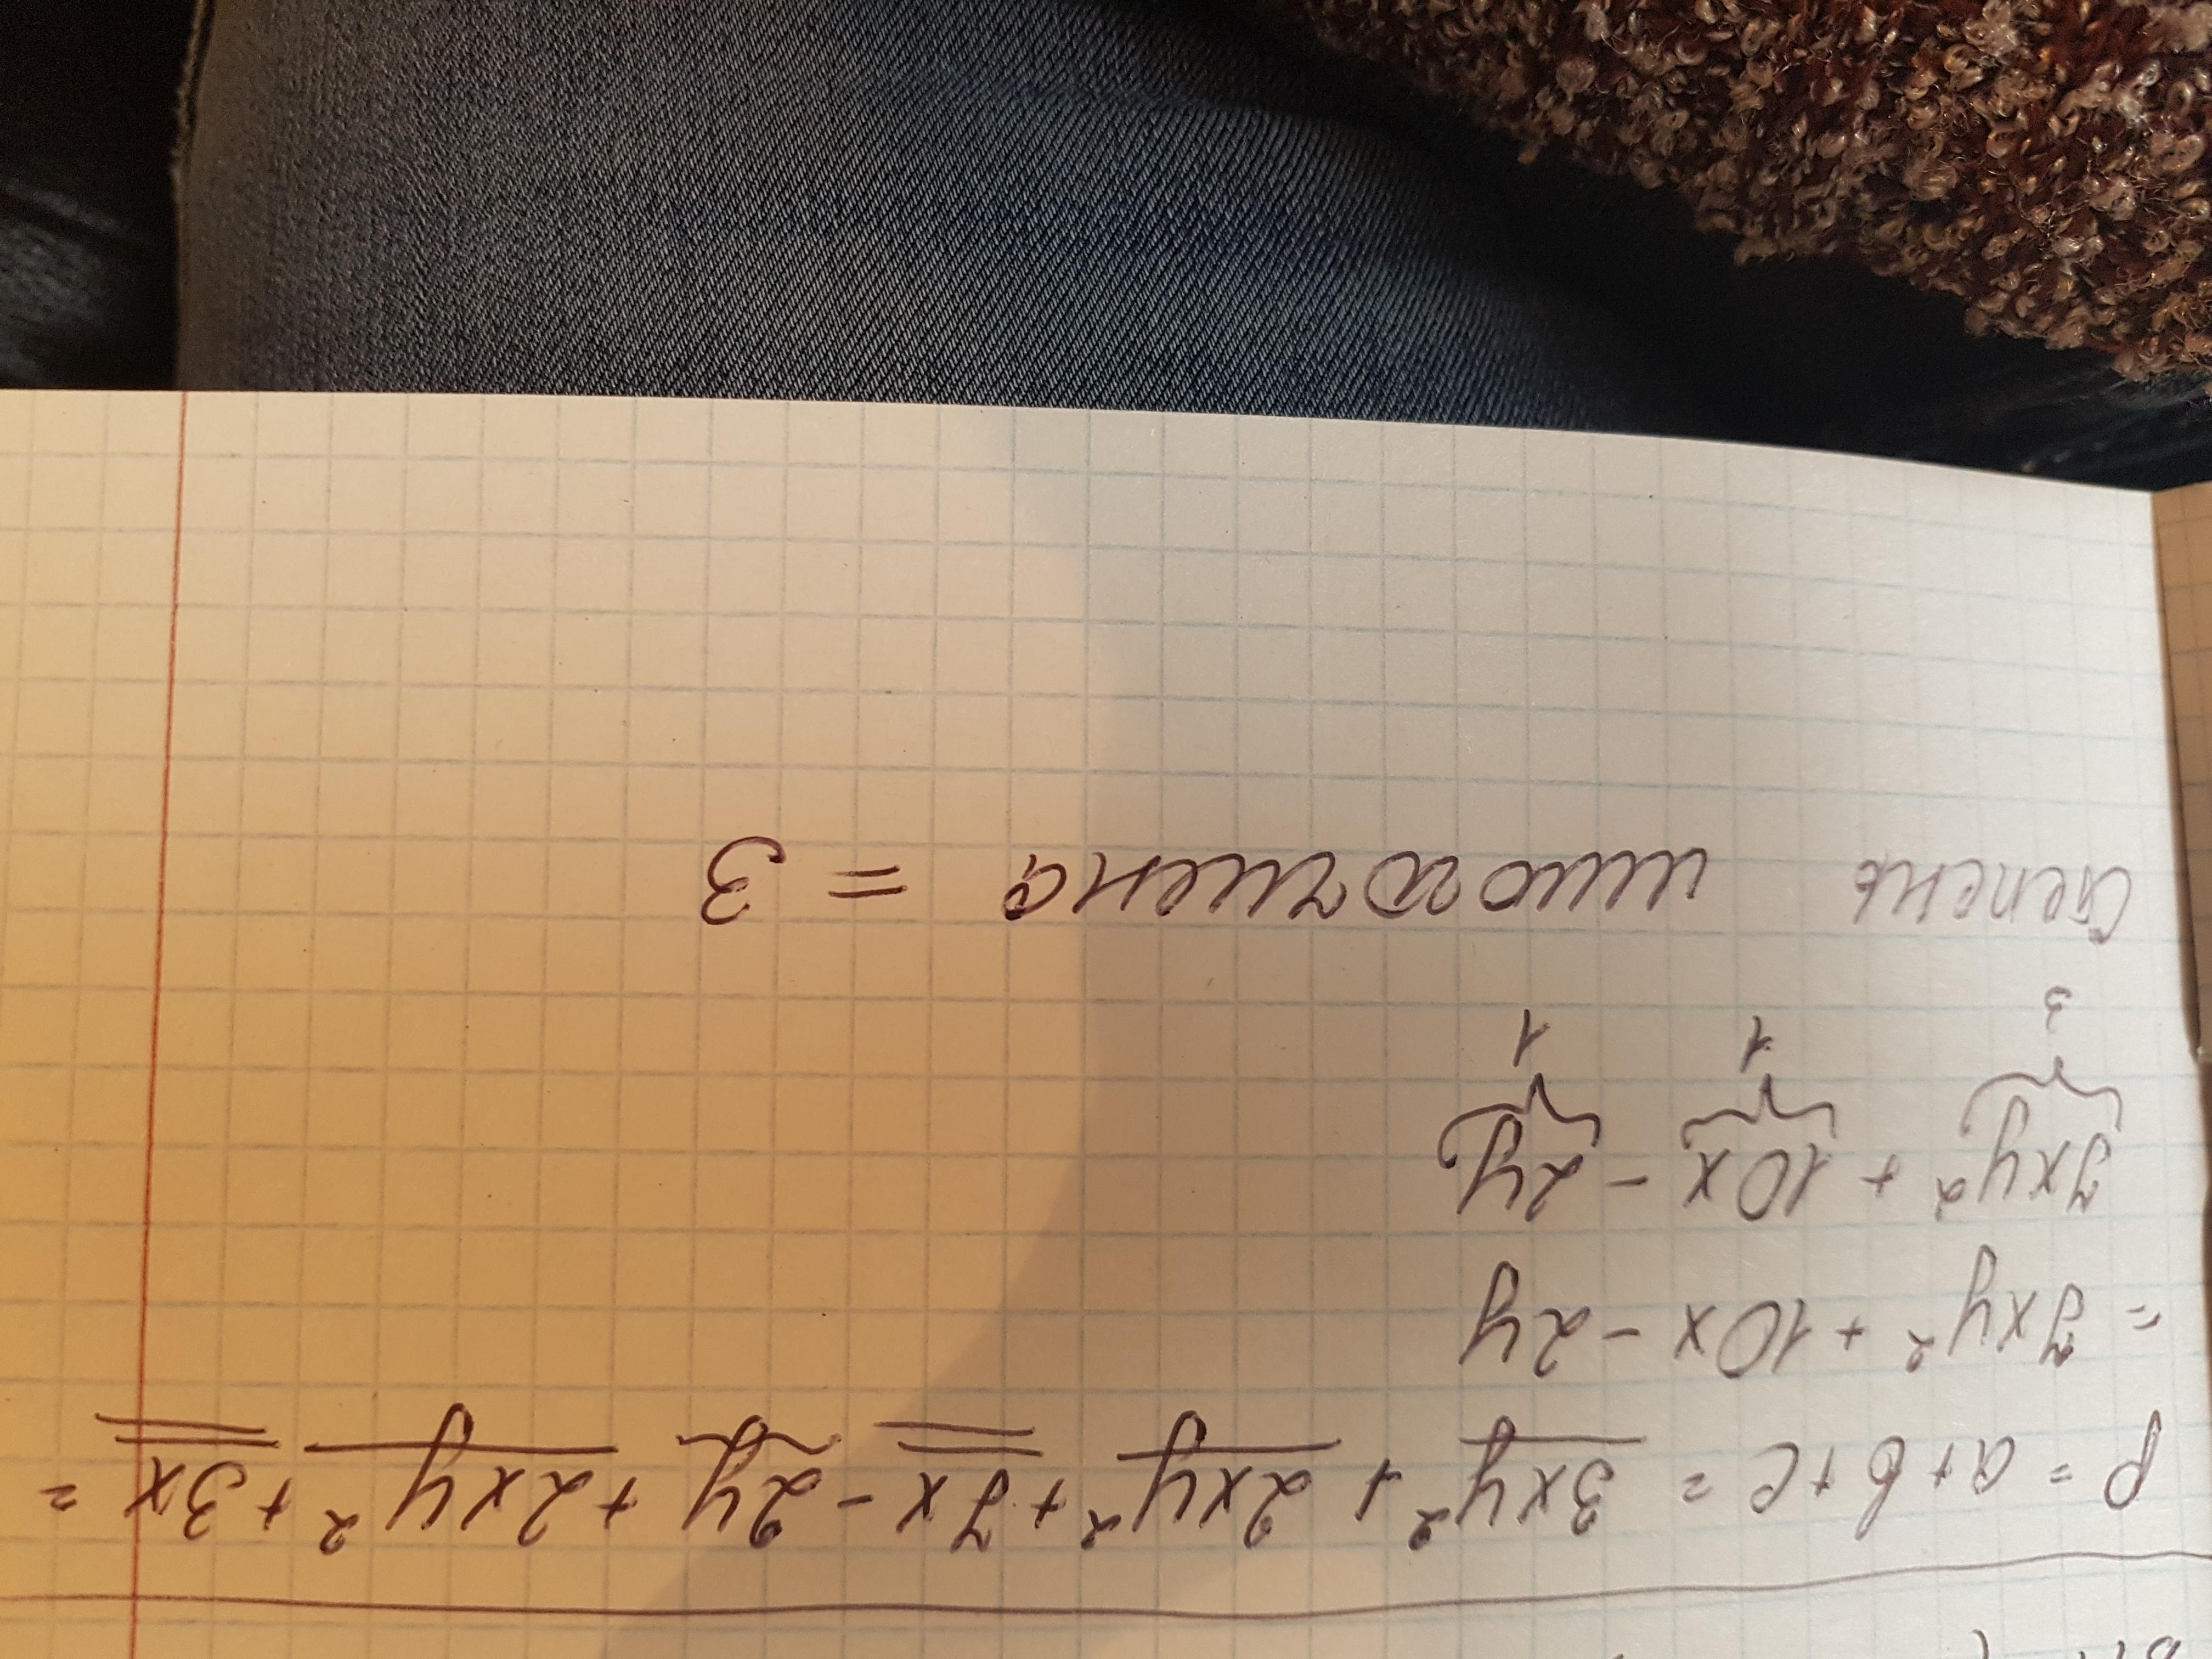 p = a + b + c = 3xy² + 2xy² + 7x - 2y + 2xy² + 3x =
= 7xy² + 10x - 2y
7xy² + 10x - 2y
3 1 1
Степень многочлена = 3